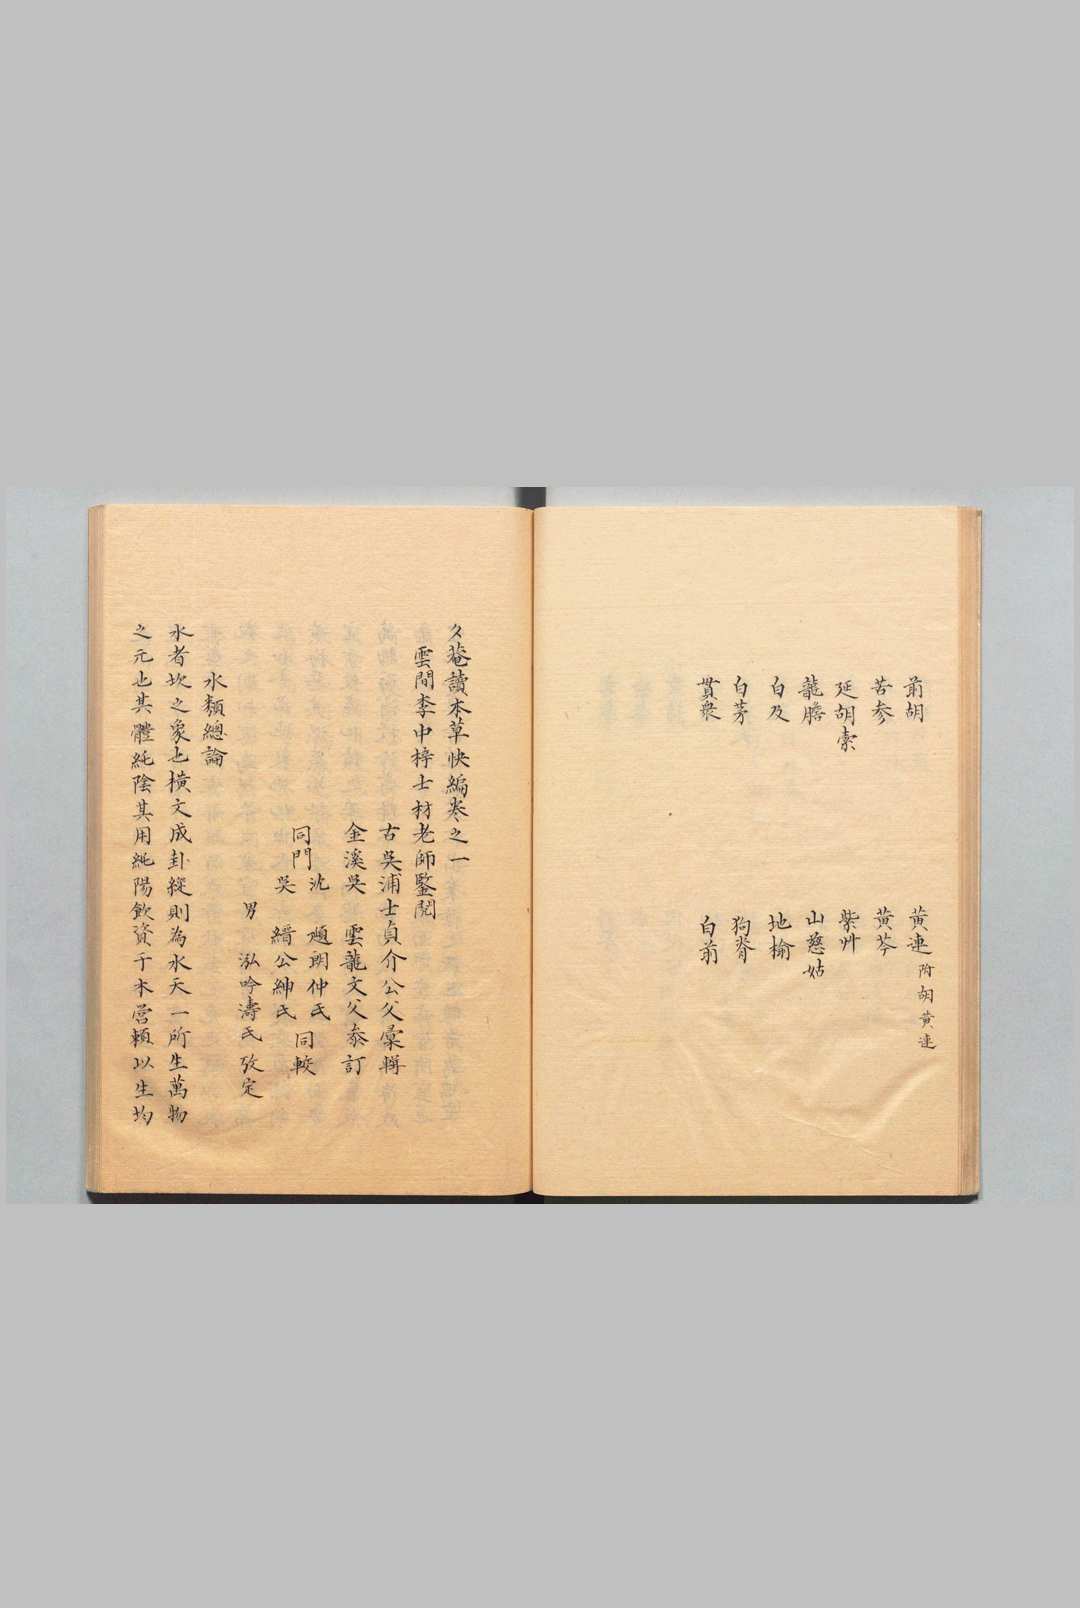 前胡　黃連附胡黃連
苦参　黃芩
延胡索　紫艸
龍膽　山慈姑
白及　地榆
白茅　狗脊
貫衆　白前
夂菴讀本草快編卷之一
雲間李中梓士材老師鑒閱
古吳浦士貞介公父彙輯
金溪吳雲龍文父叅訂
同門
沈逌朗仲氏
吳縉公紳氏
同較
男泓吟濤氏攷定
水類總論
水者坎之象也橫文成卦縱則為水天一所生萬物
之元也其體純陰其用純陽飲資于本營賴以生均